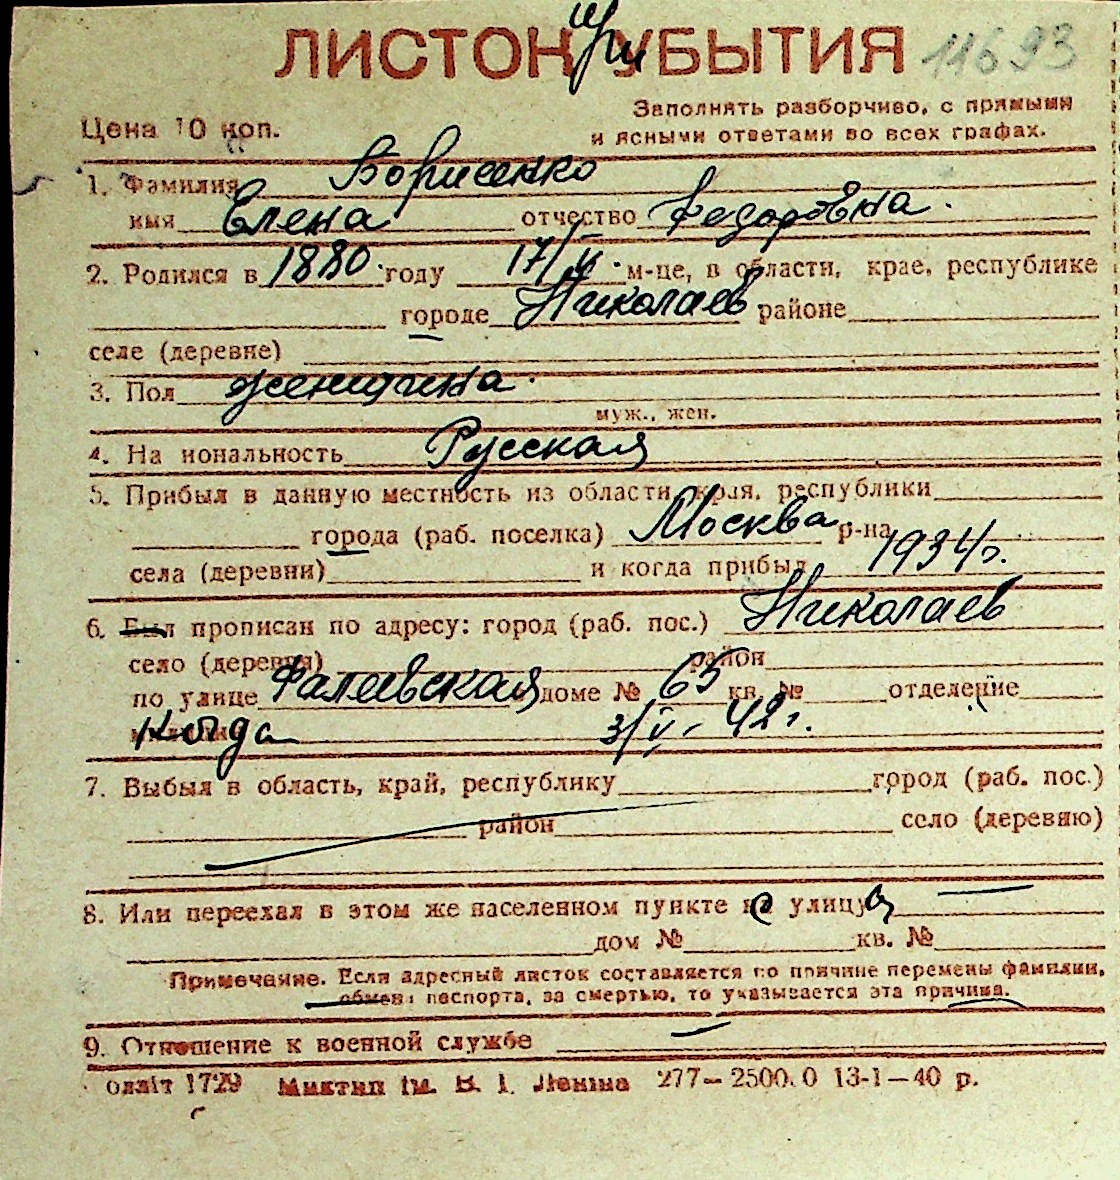 ЛИСТОК УБЫТИЯ 11693
при
Заполнять разборчиво, с прямыми
Цена 10 коп.
и ясными ответами во всех графах.
1. Фамилия Борисенко
имя Елена отчество Федоровна.
2. Родился в 1880. году 17/ м-це, в области, крае, республике
городе Николаев районе
селе (деревне)
3. Пол женщина.
муж., жен.
4. На иональность Русская
5. Прибыл в данную местность из области, края, республики
города (раб. поселка) Москва р-на
села (деревни) и когда прибыл 1934 г.
6. Был прописан по адресу: город (раб. пос.) Николаев
село (деревня) район
по улице Фалеевская доме № 65 кв. № отделение
Когда 3/V - 42 г.
7. Выбыл в область, край, республику город (раб. пос.)
район село (деревню)
8. Или переехал в этом же населенном пункте с улицы
дом № кв. №
Примечание. Если адресный листок составляется по причине перемены фамилии,
обмена паспорта, за смертью, то указывается эта причина.
9. Отношение к военной службе
олліт 1729 Миктип ім. В. І. Леніна 277—2500.0 13-1—40 р.